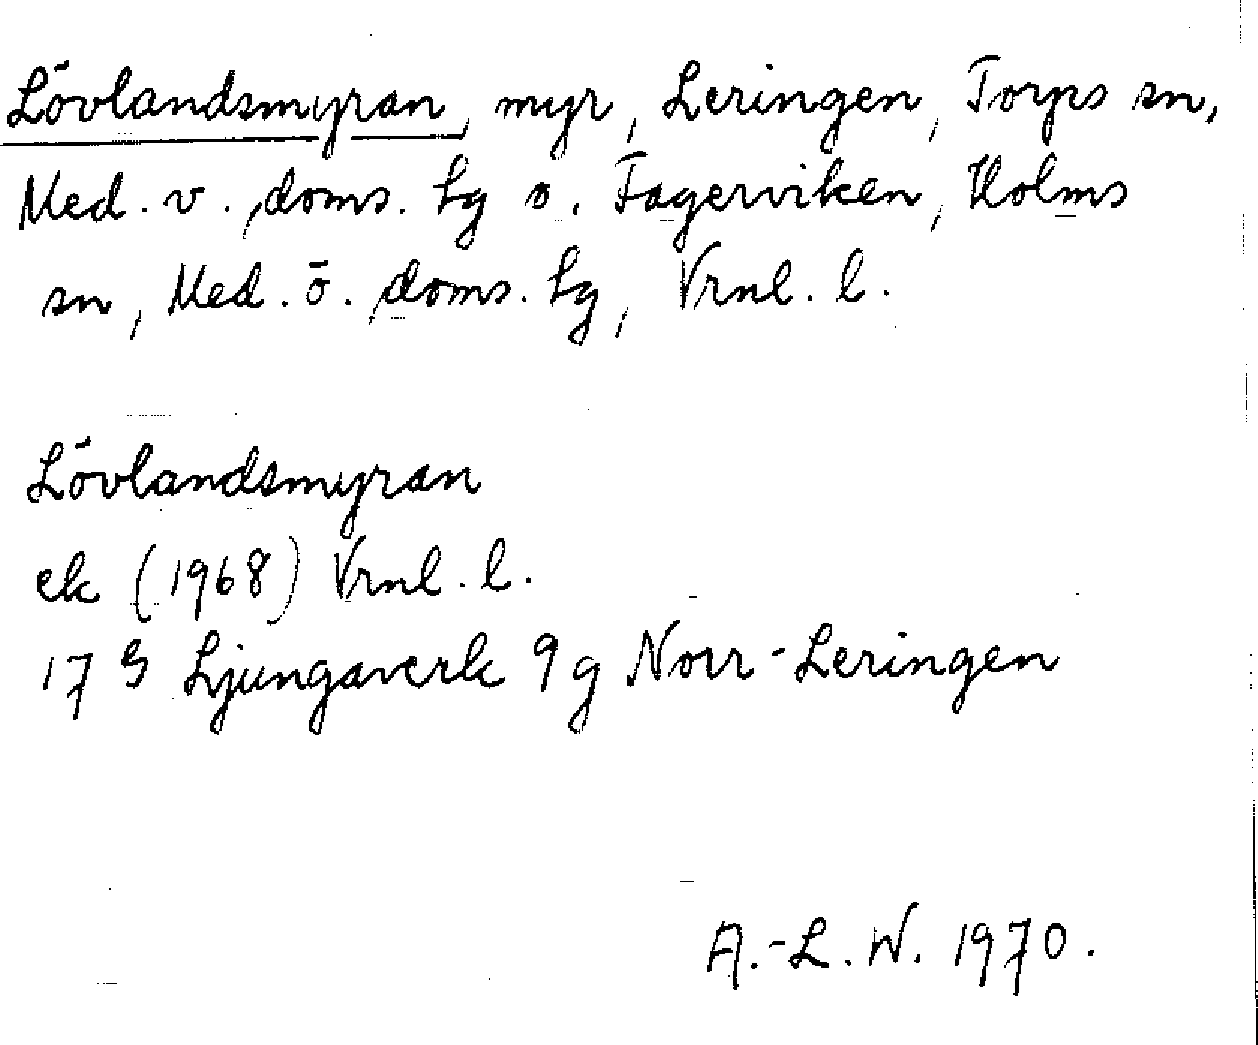 Lövlandsmyran, myr, Leringen, Torps sn,
Med. v. doms. hg o. Fagerviken, Holms
sn, Med. ö. doms. hg, Vrnl. l.
Lövlandsmyran
ek (1968) Vrnl. l.
17 G Ljungaverk 9g Norr-Leringen
A.-L. W. 1970.